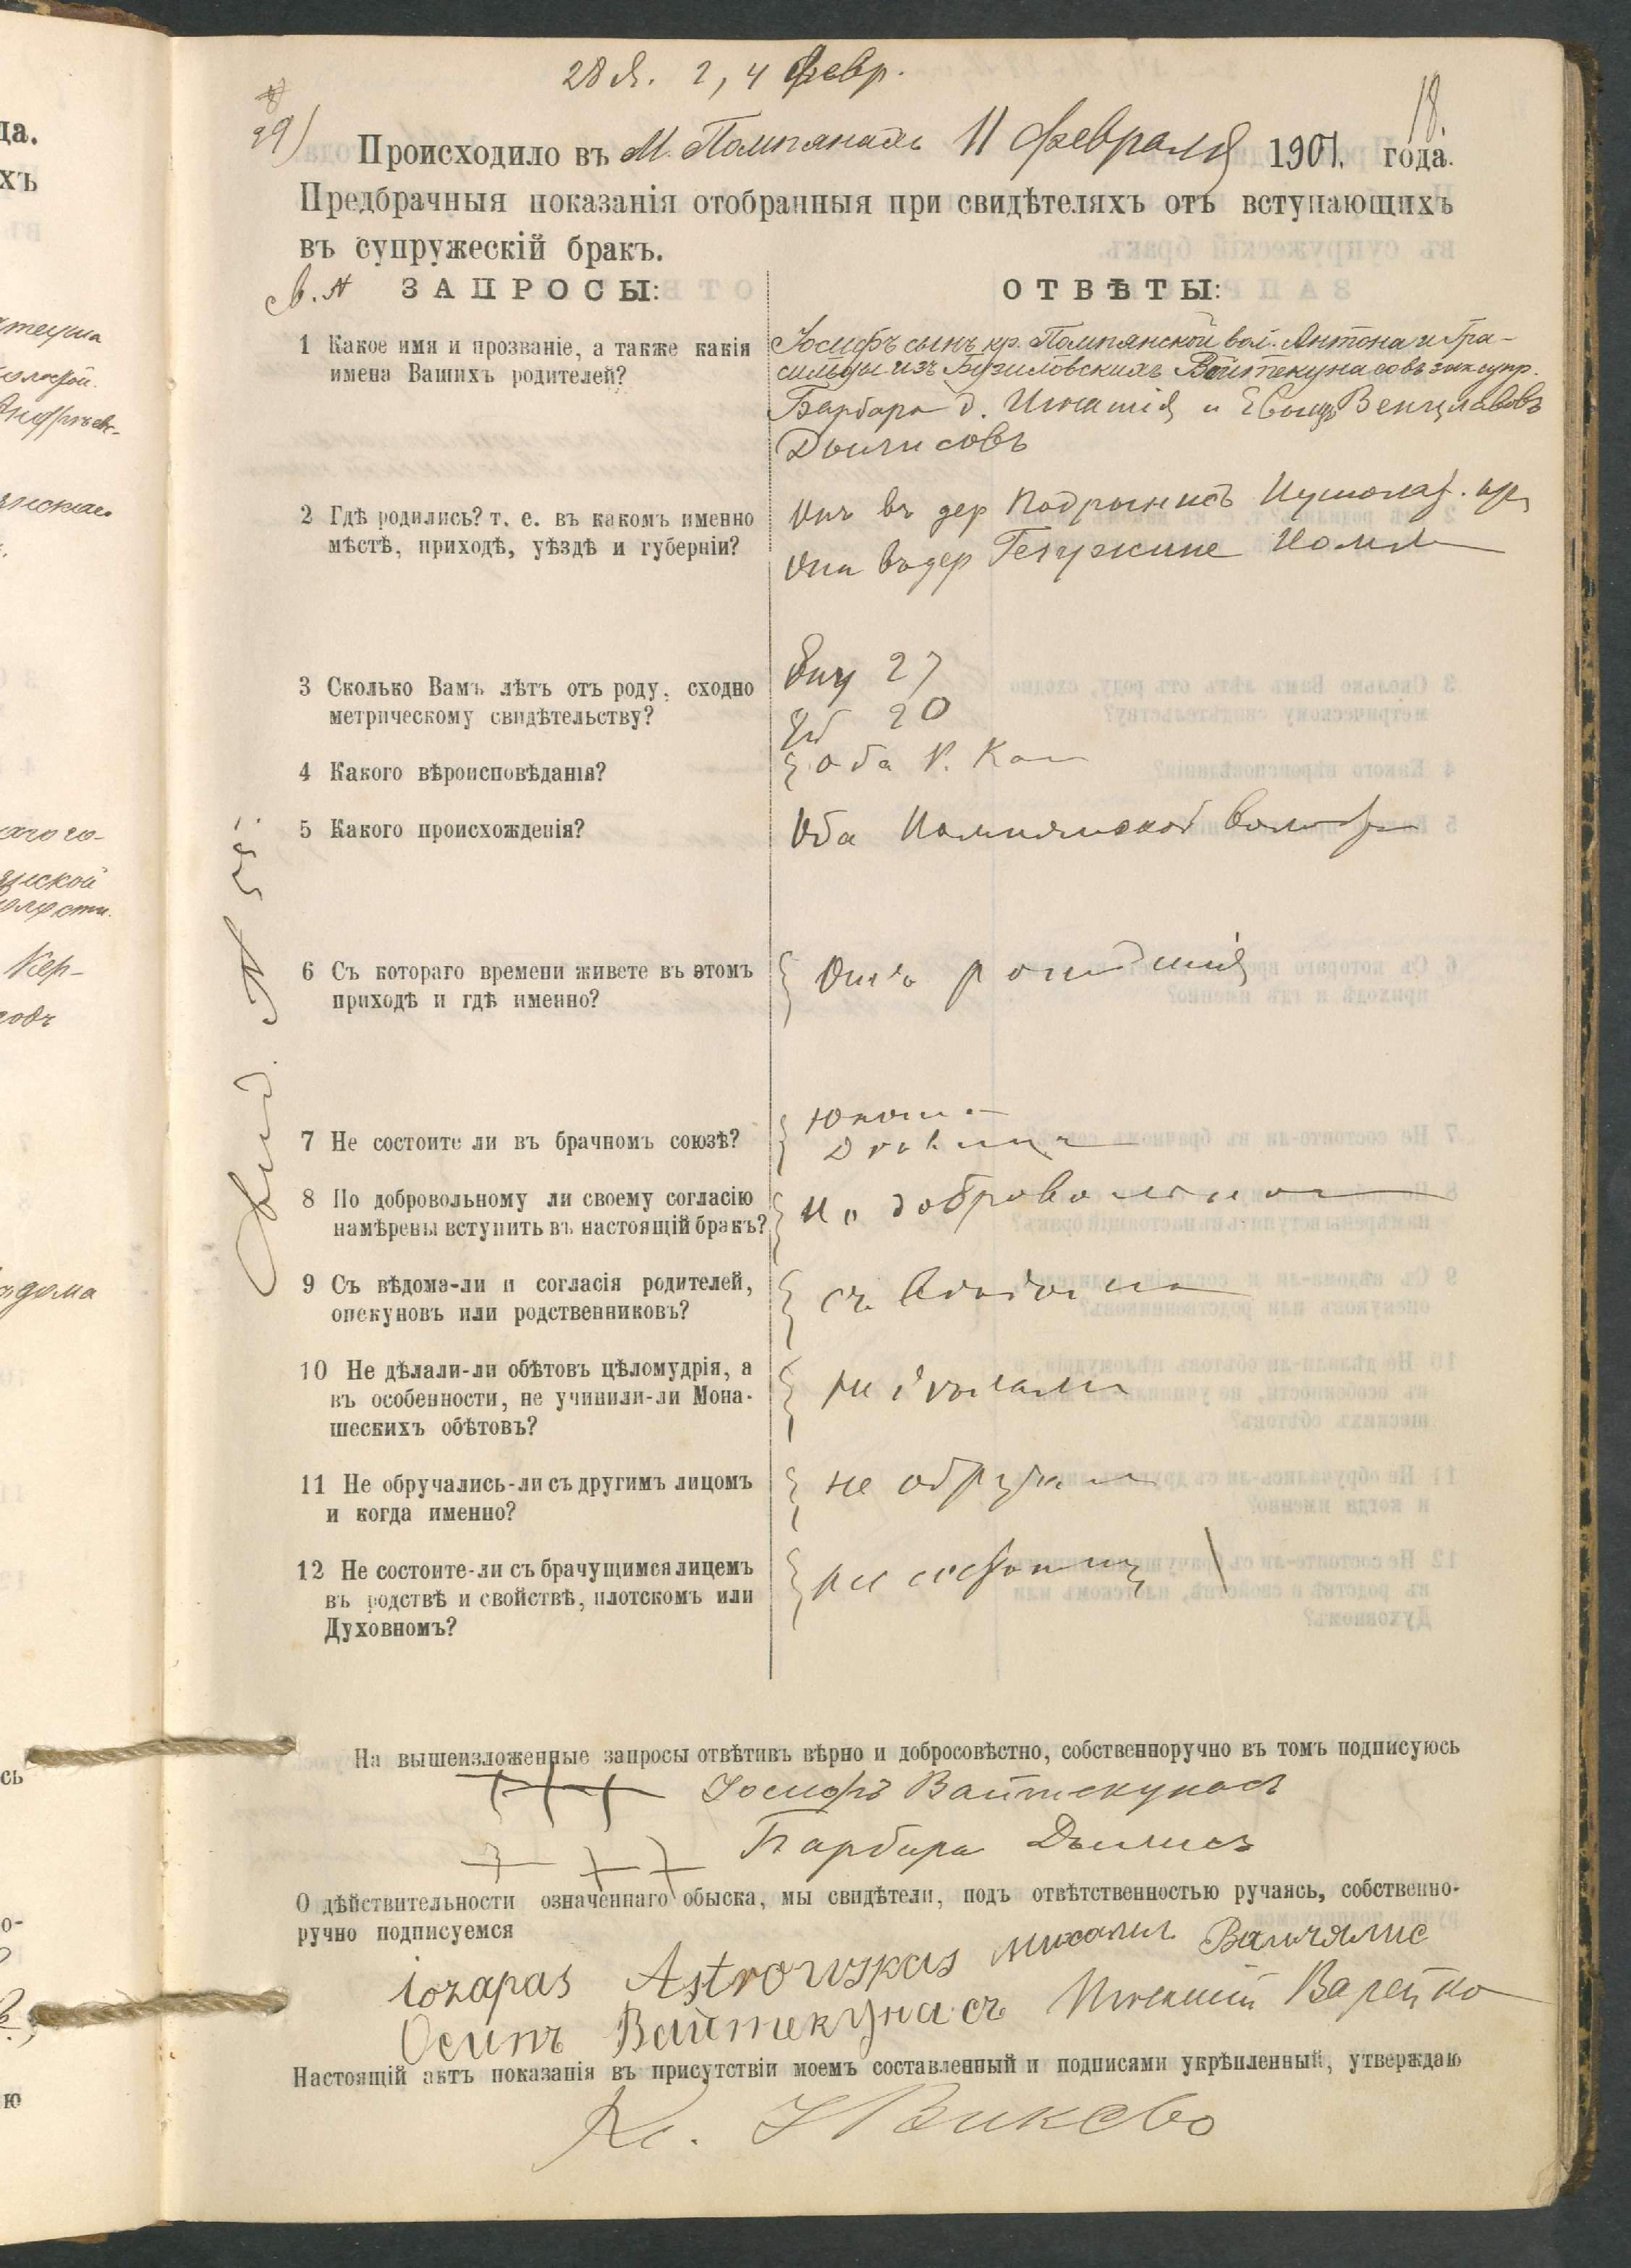 28 Я. 2, 4 Февр.
29) 18.
Происходило въ М. Помпянахъ 11 февраля 1901. года.
Предбрачныя показанія отобранныя при свидѣтеляхъ отъ вступающихъ
въ супружескій бракъ.
ЗАПРОСЫ: ОТВѢТЫ:
1 Какое имя и прозваніе, а также какія
имена Вашихъ родителей?
Іосифъ сынъ кр. Помпянской вол. Антона и Гра-
сильды изъ Бузиловскихъ Войтекунасовъ зак супр.
Барбара д. Игнатія и Евы Венцлавовъ
Дылисовъ
2 Гдѣ родились? т. е. въ какомъ именно
мѣстѣ, приходѣ, уѣздѣ и губерніи?
Онъ въ дер
Она въ дер
3 Сколько Вамъ лѣтъ отъ роду, сходно
метрическому свидѣтельству?
Ему 27
Ей 20
4 Какого вѣроисповѣданія?
Оба Р. Кат
5 Какого происхожденія?
Оба Помпянской волости
6 Съ котораго времени живете въ этомъ
приходѣ и гдѣ именно?
Отъ рожденія
7 Не состоите ли въ брачномъ союзѣ?
Юноша
Дѣвица
8 По добровольному ли своему согласію
намѣрены вступить въ настоящій бракъ?
По добровольному
9 Съ вѣдома-ли и согласія родителей,
опекуновъ или родственниковъ?
съ вѣдома
10 Не дѣлали-ли обѣтовъ цѣломудрія, а
въ особенности, не учинили-ли Мона-
шескихъ обѣтовъ?
не дѣлали
11 Не обручались-ли съ другимъ лицомъ
и когда именно?
не обручались
12 Не состоите-ли съ брачущимся лицемъ
въ родствѣ и свойствѣ, плотскомъ или
Духовномъ?
не состоимъ
На вышеизложенные запросы отвѣтивъ вѣрно и добросовѣстно, собственноручно въ томъ подписуюсь
+++ Іосифъ Вайтекунасъ
+++ Барбара Дылисъ
О дѣйствительности означеннаго обыска, мы свидѣтели, подъ отвѣтственностью ручаясь, собственно-
ручно подписуемся
iozapas Astrowskas Михаилъ
Осипъ Вайтекунасъ Игнатій
Настоящій актъ показанія въ присутствіи моемъ составленный и подписями укрѣпленный, утверждаю
Кс.